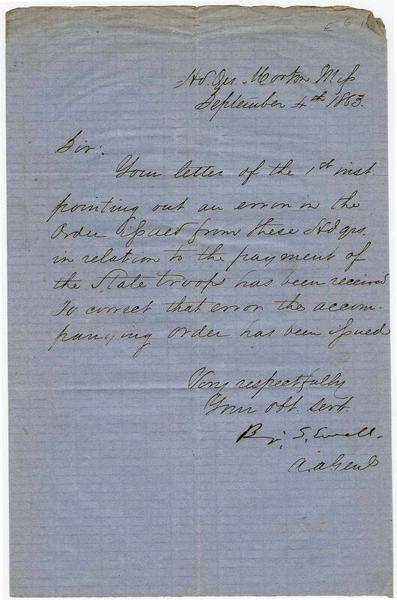 Hd. Qrs. Morton Miss
September 4th 1863.
Sir:
Your letter of the 1st inst
pointing out an error in the
Order issued from these Hd qrs.
in relation to the payment of
the State troops has been received
To correct that error the accom-
panying order has been issued
Very respectfully
Your obt. servt
B. S. Ewell.
A. A. Genl